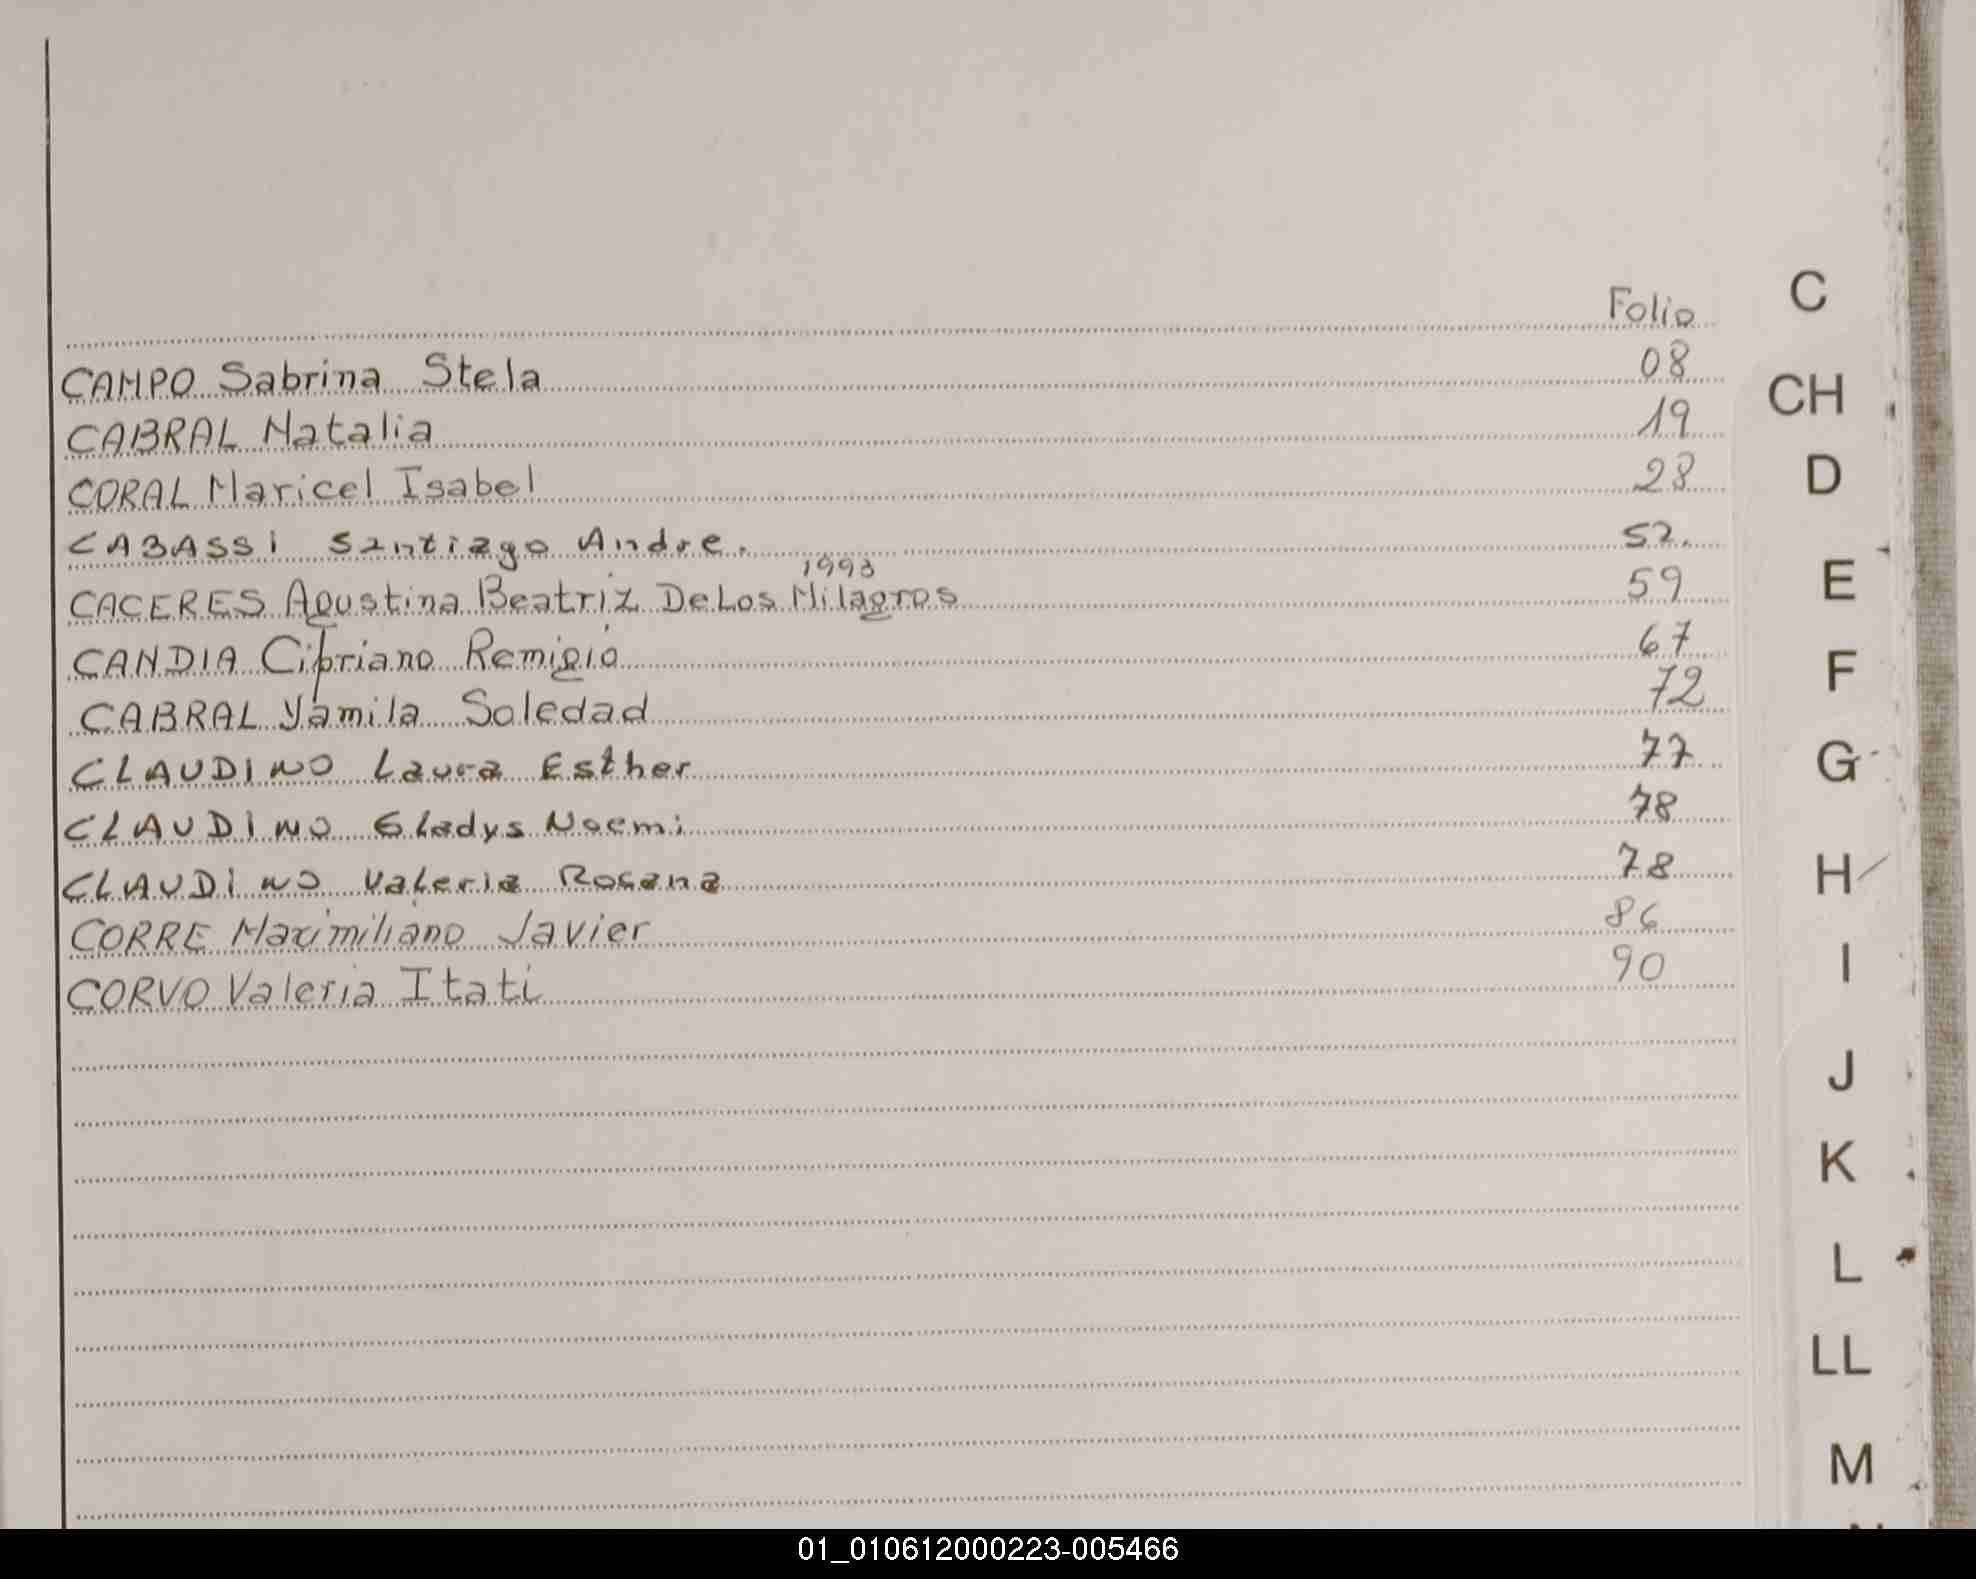 Folio
CAMPO Sabrina Stela 08
CABRAL Natalia 19
CORAL Maricel Isabel 28
CABASSI Santiago Andre. 52.
1993
CACERES Agustina Beatriz De Los Milagros 59
CANDIA Cipriano Remigio 67
CABRAL Yamila Soledad 72
CLAUDINO Laura Esther 77
CLAUDINO Gladys Noemi 78
CLAUDINO Valeria Rosana 78
CORRE Maximiliano Javier 86
CORVO Valeria Itati 90
C
CH
D
E
F
G
H
I
J
K
L
LL
M
01_010612000223-005466